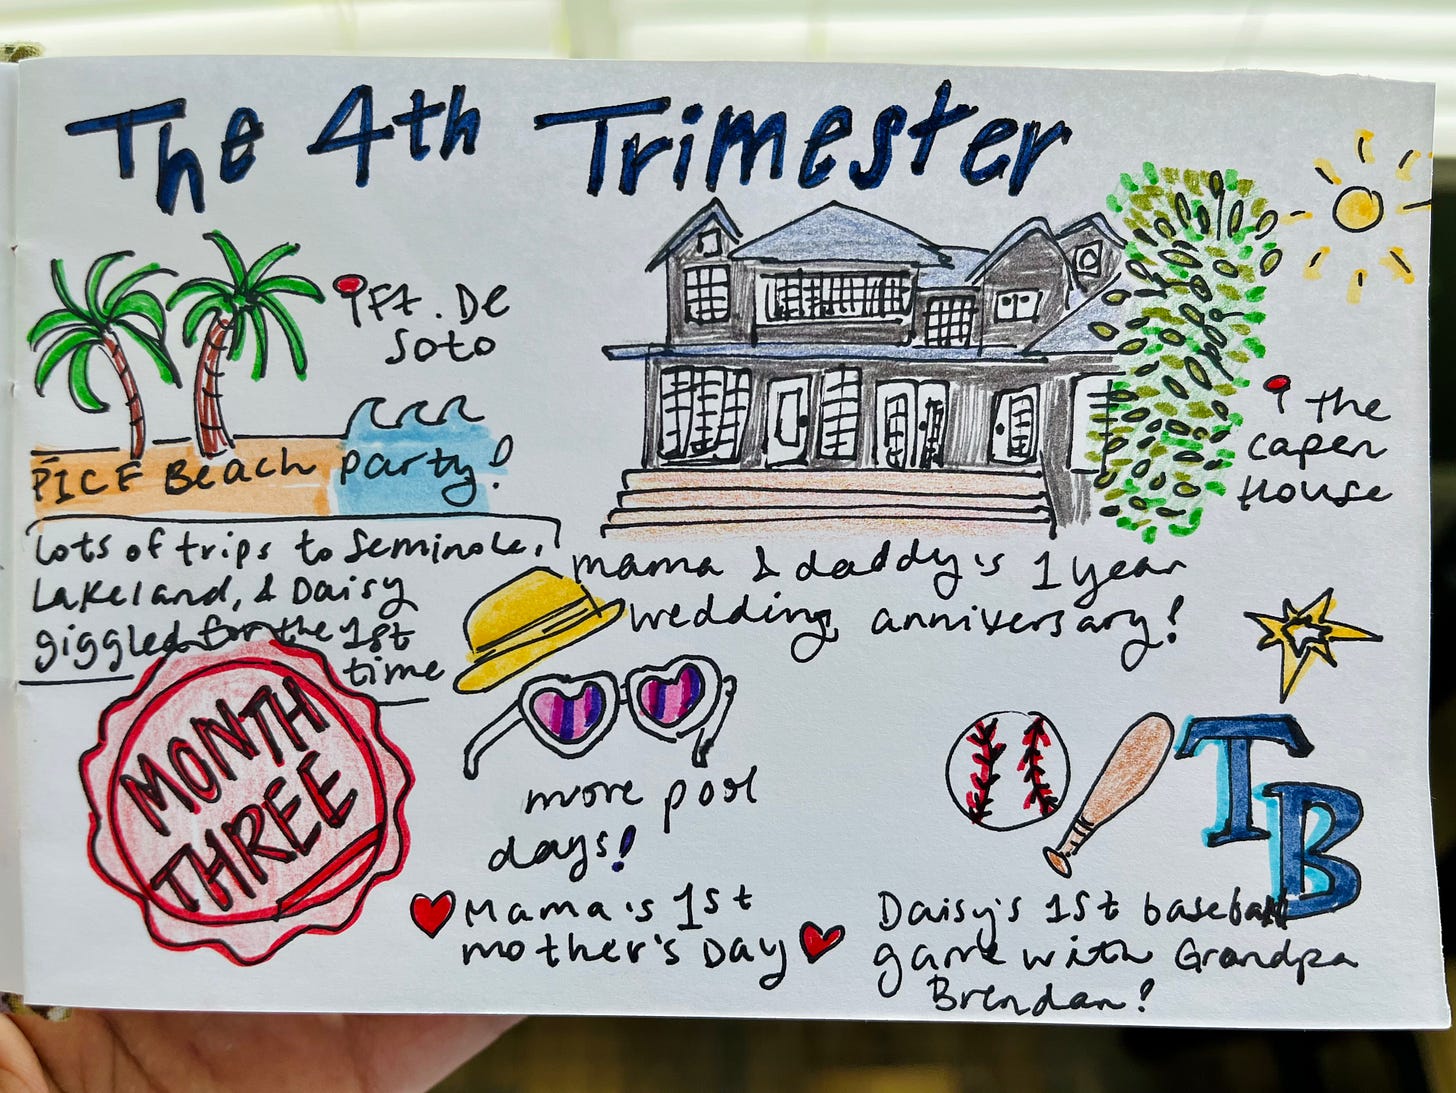 The 4th Trimester
Ft. De
Soto
PICF Beach party!
Lots of trips to Seminole,
Lakeland, & Daisy
giggled for the 1st
time
the
Capen
House
mama & daddy's 1 year
wedding anniversary!
MONTH
THREE
more pool
days!
Mama's 1st
mother's Day
TB
Daisy's 1st baseball
game with Grandpa
Brendan!